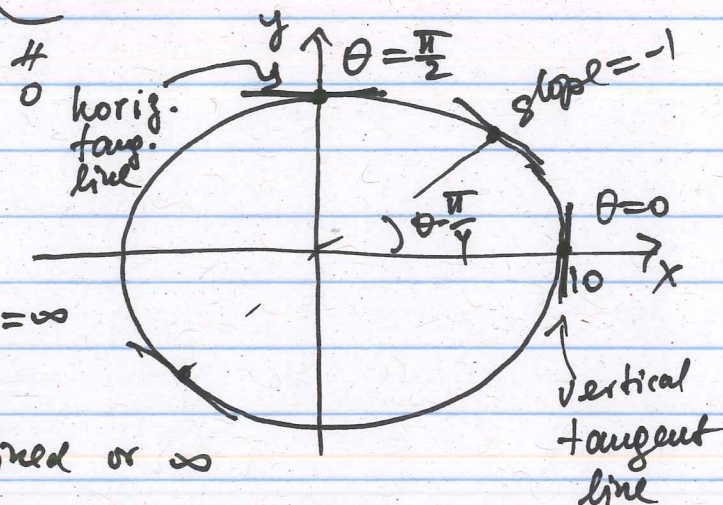 y
θ = π/2
#
0
horiz.
tang.
line
slope = -1
θ = π/4
θ=0
10
x
= ∞
vertical
tangent
line
ined or ∞